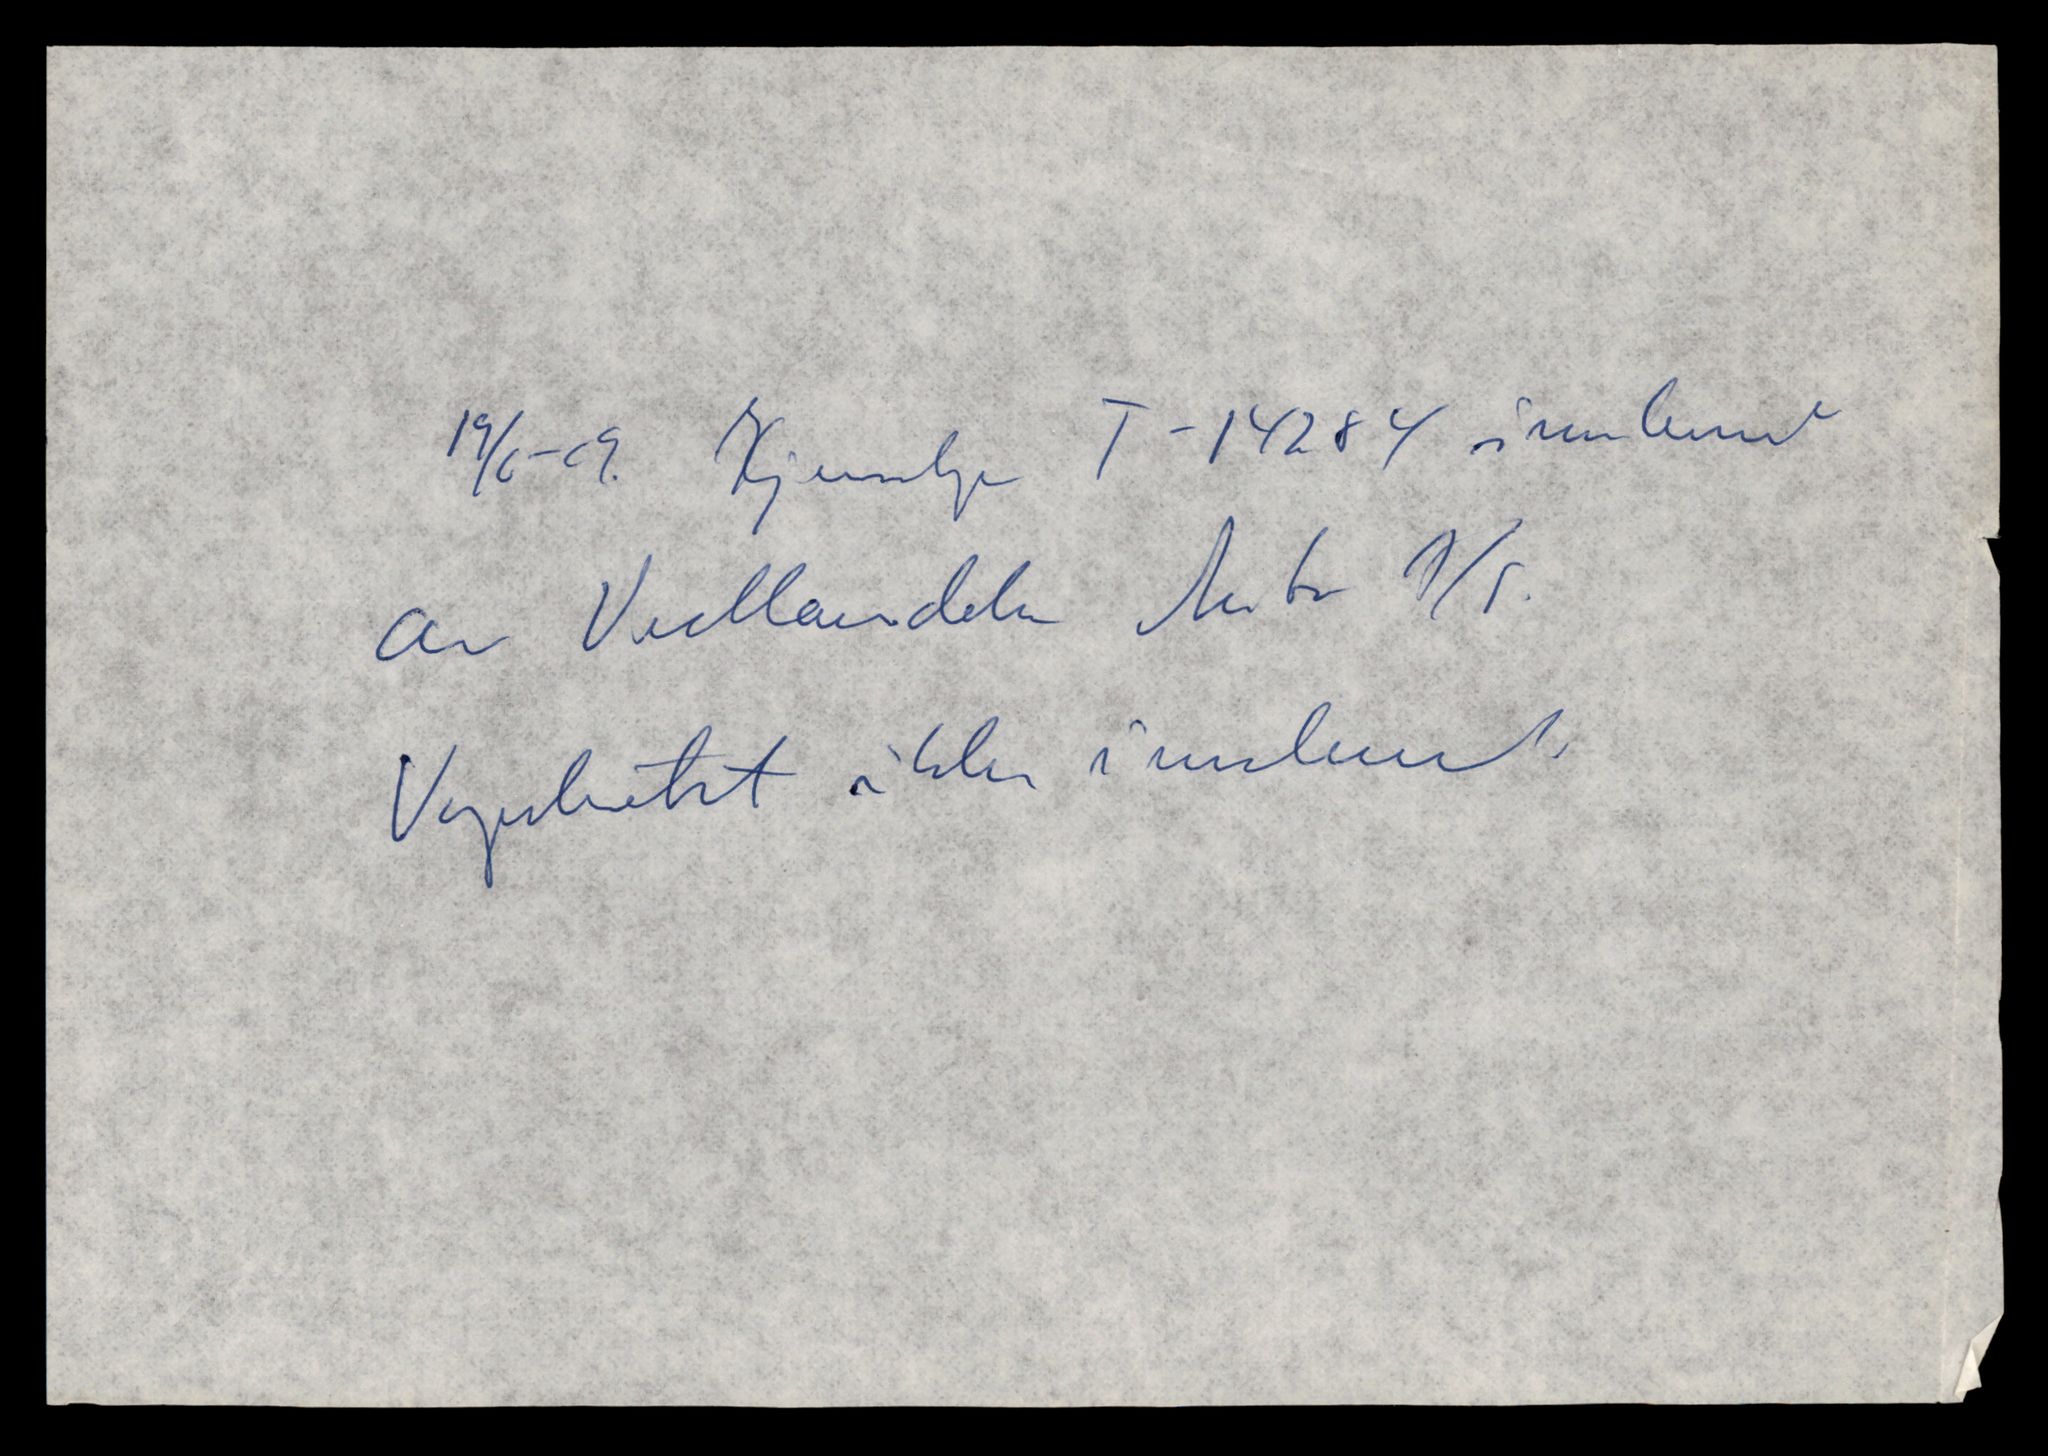 19/6-69. Kjennskje T-14284 innlevert
av Vestlandske Auto A/S.
Vognkortet ikke innlevert.